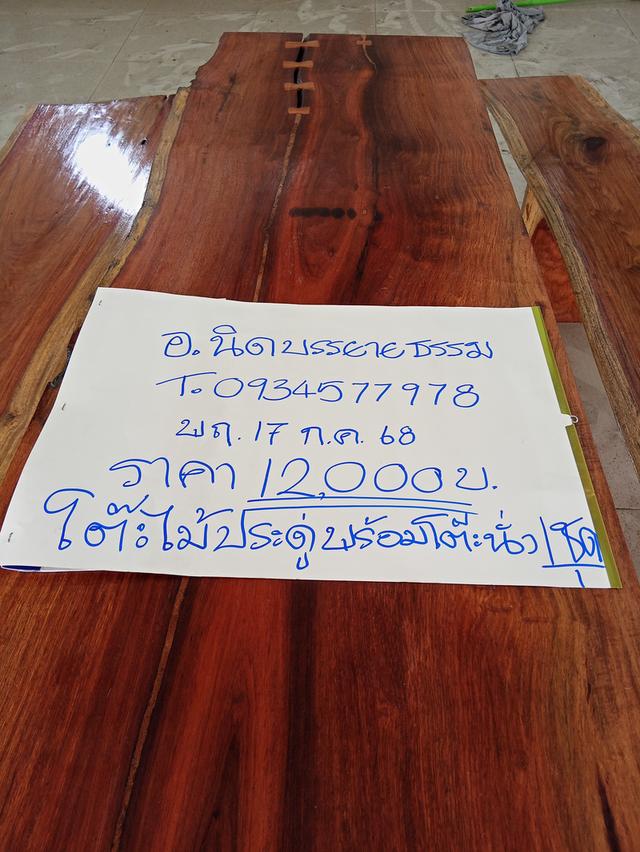 อ. นิดบรรยายธรรม
T. 0934577978
พฤ. 17 ก.ค. 68
ราคา 12,000 บ.
โต๊ะไม้ประดู่พร้อมโต๊ะนั่ง 1 ชุด